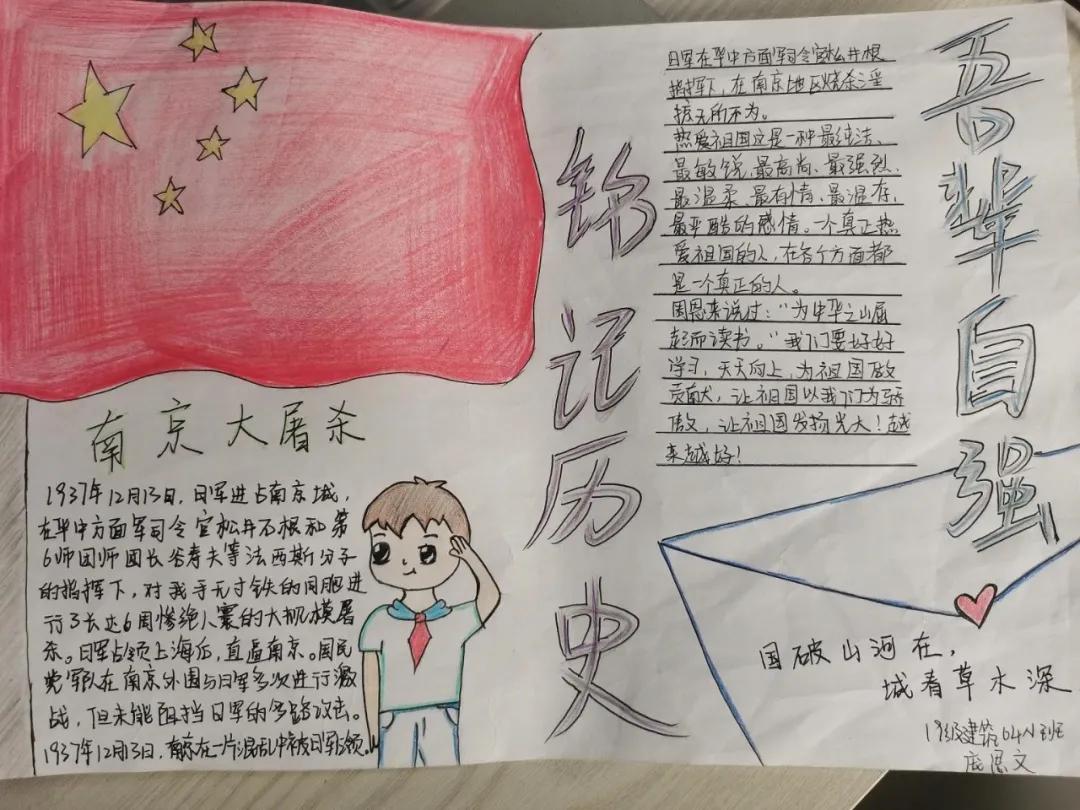 南京大屠杀
1937年12月13日，日军进占南京城，
在华中方面军司令官松井石根和第
6师团师团长谷寿夫等法西斯分子
的指挥下，对我手无寸铁的同胞进
行了长达6周惨绝人寰的大规模屠
杀。日军占领上海后，直逼南京。国民
党军队在南京外围与日军多次进行激
战，但未能阻挡日军的多路攻击。
1937年12月13日，南京在一片混乱中被日军占领。
铭记历史
日军在华中方面军司令官松井根
指挥下，在南京地区烧杀淫
掠无所不为。
热爱祖国这是一种最纯洁、
最敏锐、最高尚、最强烈、
最温柔、最有情、最温存、
最严酷的感情。一个真正热
爱祖国的人，在各个方面都
是一个真正的人。
周恩来说过：“为中华之崛
起而读书。”我们要好好
学习，天天向上，为祖国做
贡献，让祖国以我们为骄
傲，让祖国发扬光大！越
来越好！
吾辈自强
国破山河在，
城春草木深
19级建筑04班